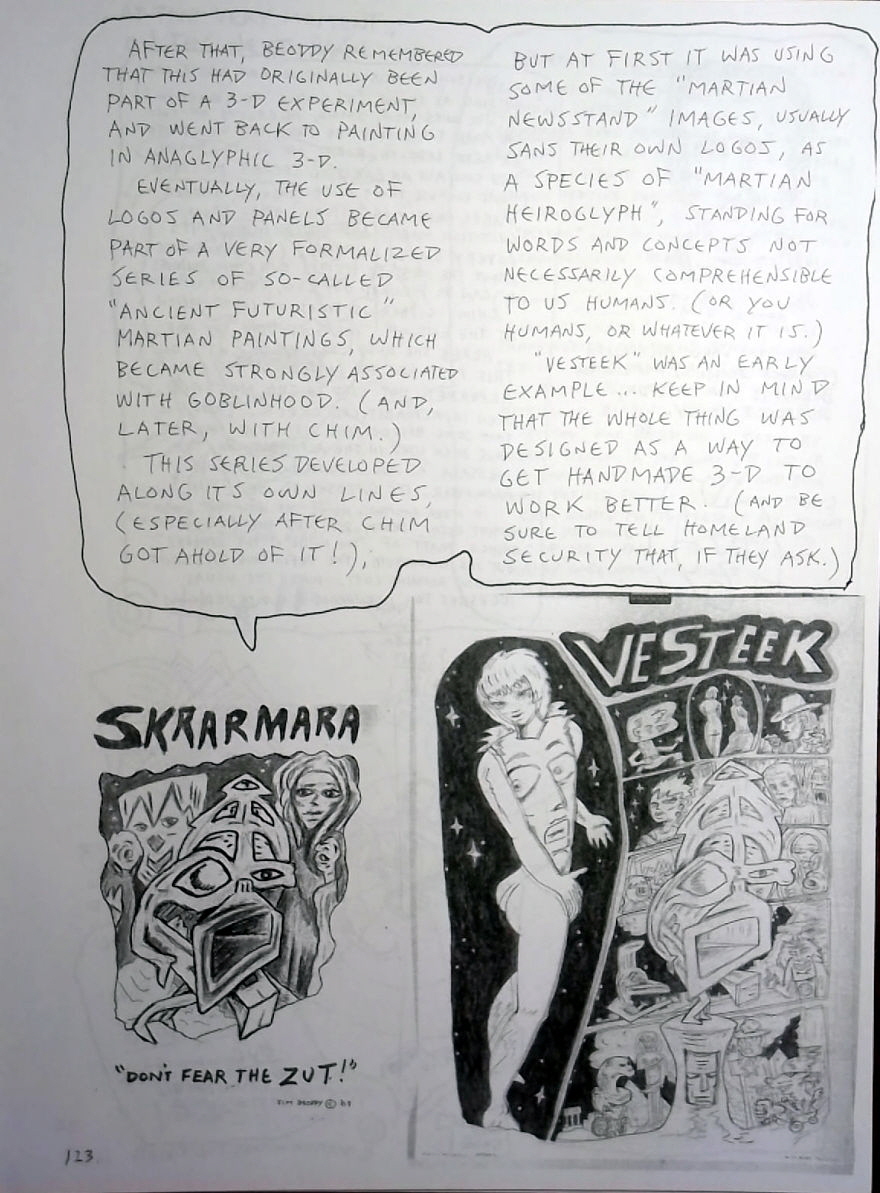 AFTER THAT, BEODDY REMEMBERED
THAT THIS HAD ORIGINALLY BEEN
PART OF A 3-D EXPERIMENT,
AND WENT BACK TO PAINTING
IN ANAGLYPHIC 3-D.
EVENTUALLY, THE USE OF
LOGOS AND PANELS BECAME
PART OF A VERY FORMALIZED
SERIES OF SO-CALLED
"ANCIENT FUTURISTIC"
MARTIAN PAINTINGS, WHICH
BECAME STRONGLY ASSOCIATED
WITH GOBLINHOOD. (AND,
LATER, WITH CHIM.)
THIS SERIES DEVELOPED
ALONG ITS OWN LINES,
(ESPECIALLY AFTER CHIM
GOT AHOLD OF IT!),
BUT AT FIRST IT WAS USING
SOME OF THE "MARTIAN
NEWSSTAND" IMAGES, USUALLY
SANS THEIR OWN LOGOS, AS
A SPECIES OF "MARTIAN
HEIROGLYPH", STANDING FOR
WORDS AND CONCEPTS NOT
NECESSARILY COMPREHENSIBLE
TO US HUMANS. (OR YOU
HUMANS, OR WHATEVER IT IS.)
"VESTEEK" WAS AN EARLY
EXAMPLE... KEEP IN MIND
THAT THE WHOLE THING WAS
DESIGNED AS A WAY TO
GET HANDMADE 3-D TO
WORK BETTER. (AND BE
SURE TO TELL HOMELAND
SECURITY THAT, IF THEY ASK.)
VESTEEK
SKRARMARA
"DON'T FEAR THE ZUT!"
©
123